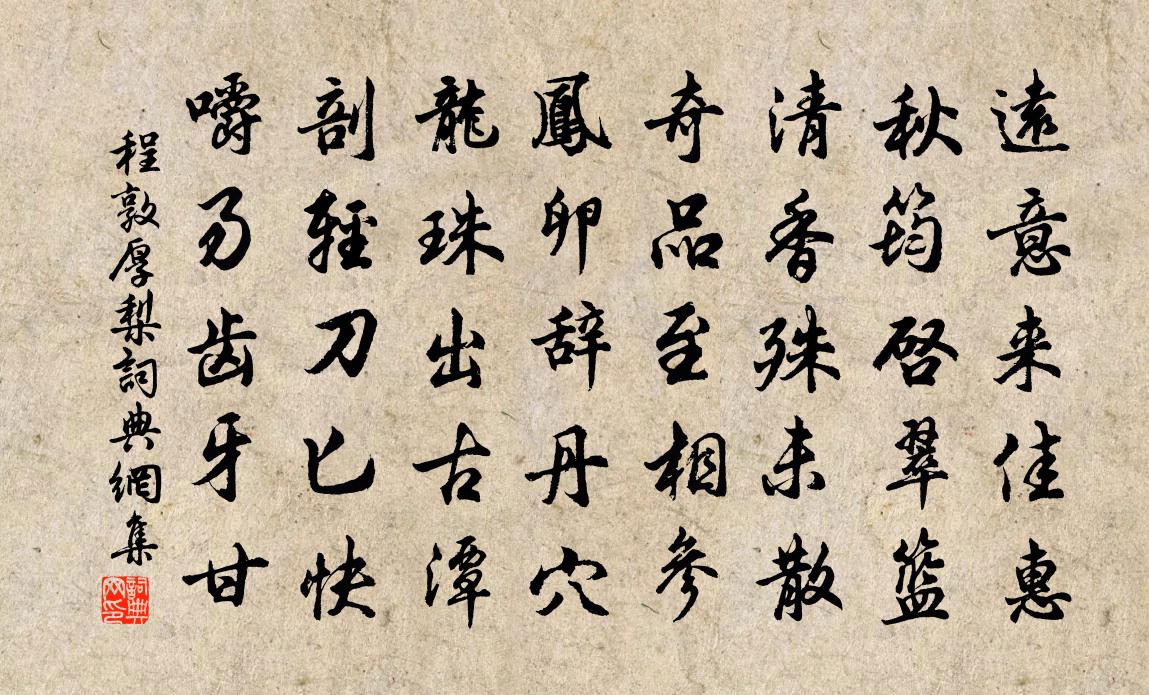 遠意来佳惠
秋筠啓翠籃
清香殊未散
奇品至相參
鳳卵辞丹穴
龍珠出古潭
剖輕刀匕快
嚼易齒牙甘
程敦厚梨詞典網集
詞典網印